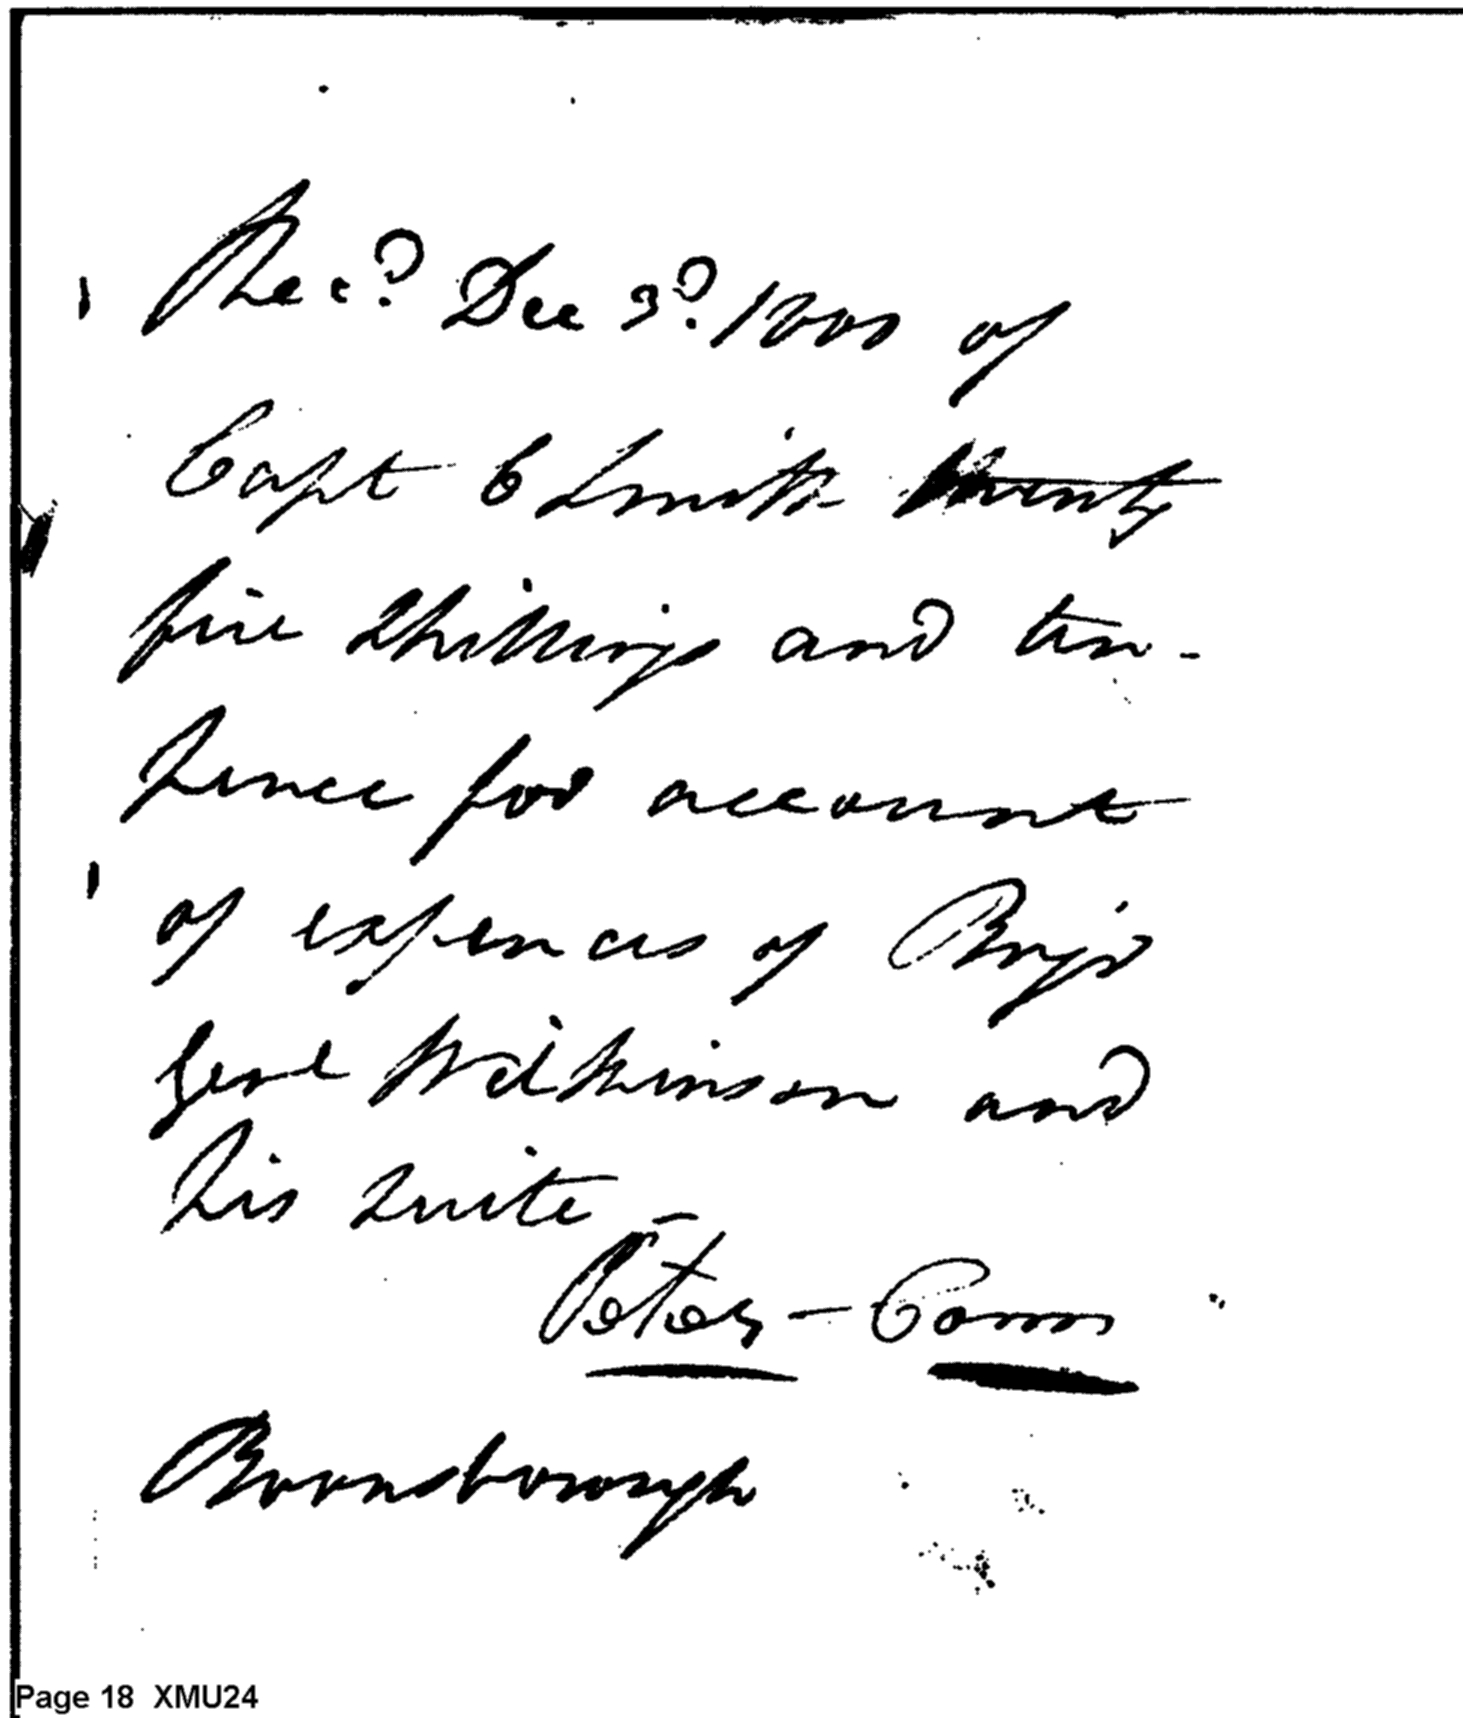 Recd. Dec 3d. 1800 of
Capt C Smith twenty
five Shillings and ten
pence for account
of expences of Brigr
Genl Wilkinson and
his suite
Peter Conn
Boonsborough
Page 18 XMU24